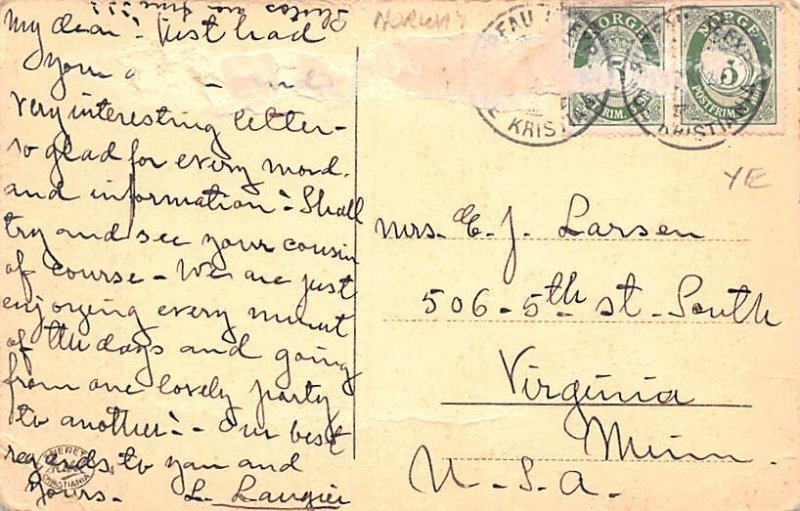 My dear:- Just had
your
very interesting letter-
so glad for every word.
and information:- Shall
try and see your cousin
of course - We are just
enjoying every minut
of the days and going
from one lovely party
to another:- - Our best
regards to you and
yours. - L. Laugier
NORWAY
NORGE
NORGE
5
POSTFRIM
KRISTIANIA
YE
Mrs. E. J. Larsen
506 - 5th st - South
Virginia
Minn.
U. S. A.